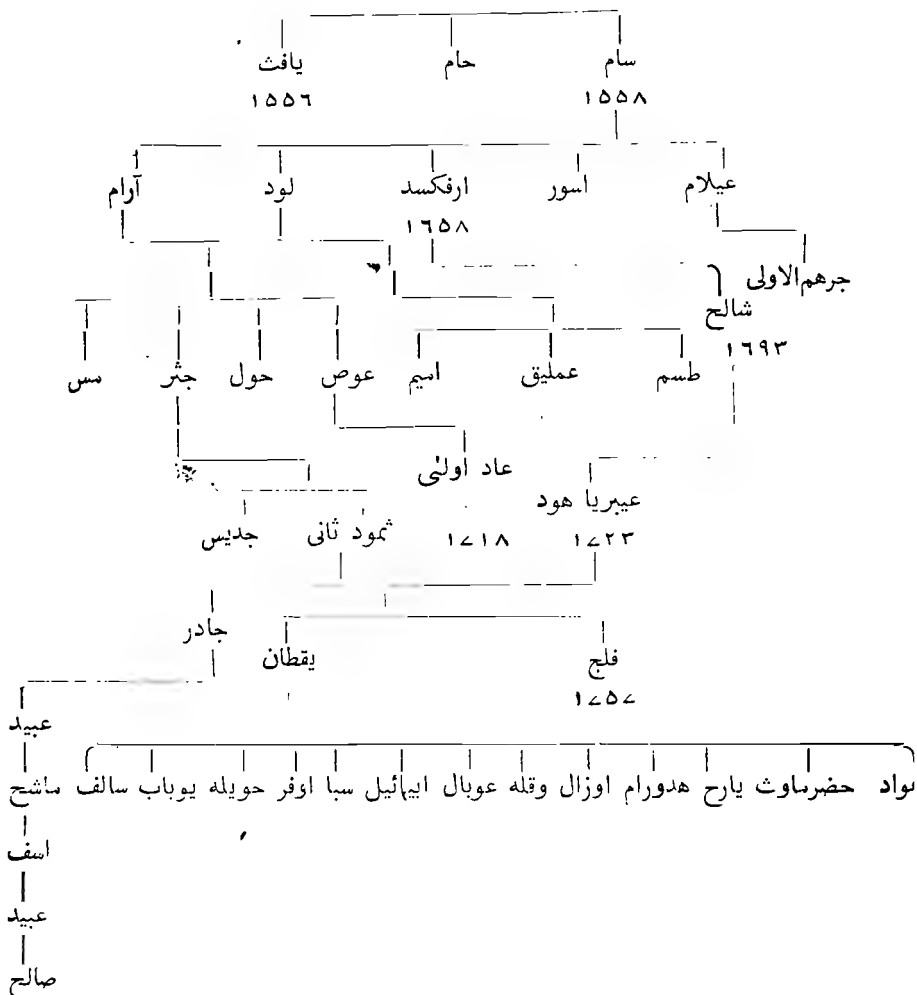 سام حام یافث
۱۵۵۸ ۱۵۵٦
عیلام اسور ارفکسد لود آرام
۱٦۵۸
جرهم الاولی
شالح
۱٦۹۳
طسم عملیق اسیم عوص حول جثر مس
عاد اولئی
عیبریا هود ثمود ثانی جدیس
۱۷۲۳ ۱۷۱۸
جادر
فلج یقطان
۱۷۵۷
عبید
حضرماوث یارح هدورام اوزال وقله عوبال ابیمائیل سبا اوفر حویله یوباب سالف ماشح
اسف
عبید
صالح